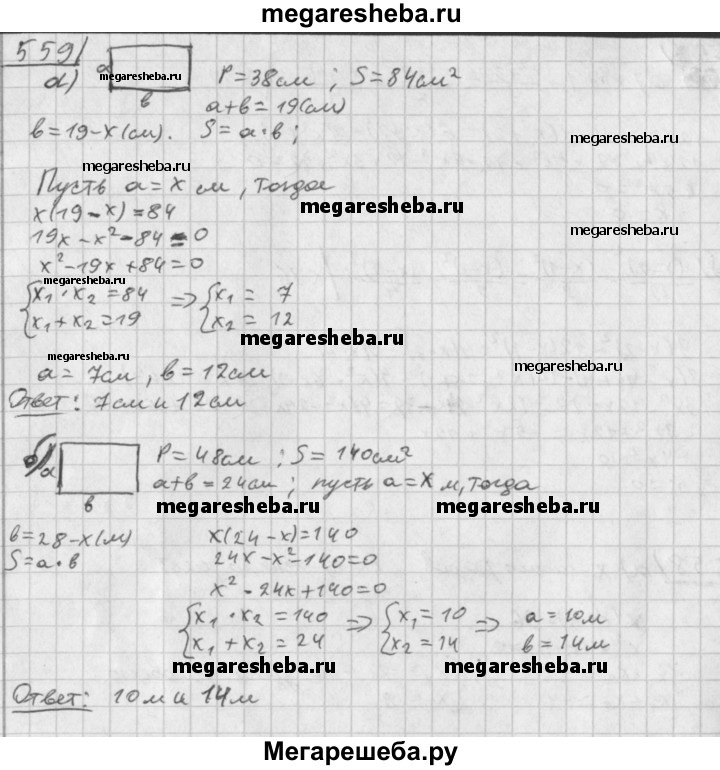 megaresheba.ru
559)
а) а megaresheba.ru P=38см ; S=84см²
в a+в=19(см)
в=19-x(см). S=a·в; megaresheba.ru
megaresheba.ru
Пусть a=x см, тогда
x(19-x)=84 megaresheba.ru
19x-x²-84=0 megaresheba.ru
x²-19x+84=0
megaresheba.ru
{x₁·x₂=84 => {x₁=7
{x₁+x₂=19 {x₂=12
megaresheba.ru
megaresheba.ru
a=7см, в=12см megaresheba.ru
Ответ: 7см и 12см
а P=48см ; S=140см²
a+в=24см ; пусть a=x м, тогда
в megaresheba.ru megaresheba.ru
в=28-x(м) x(24-x)=140
S=a·в 24x-x²-140=0
x²-24x+140=0
{x₁·x₂=140 => {x₁=10 => a=10м
{x₁+x₂=24 {x₂=14 в=14м
megaresheba.ru megaresheba.ru
Ответ: 10м и 14м
Мегарешеба.ру